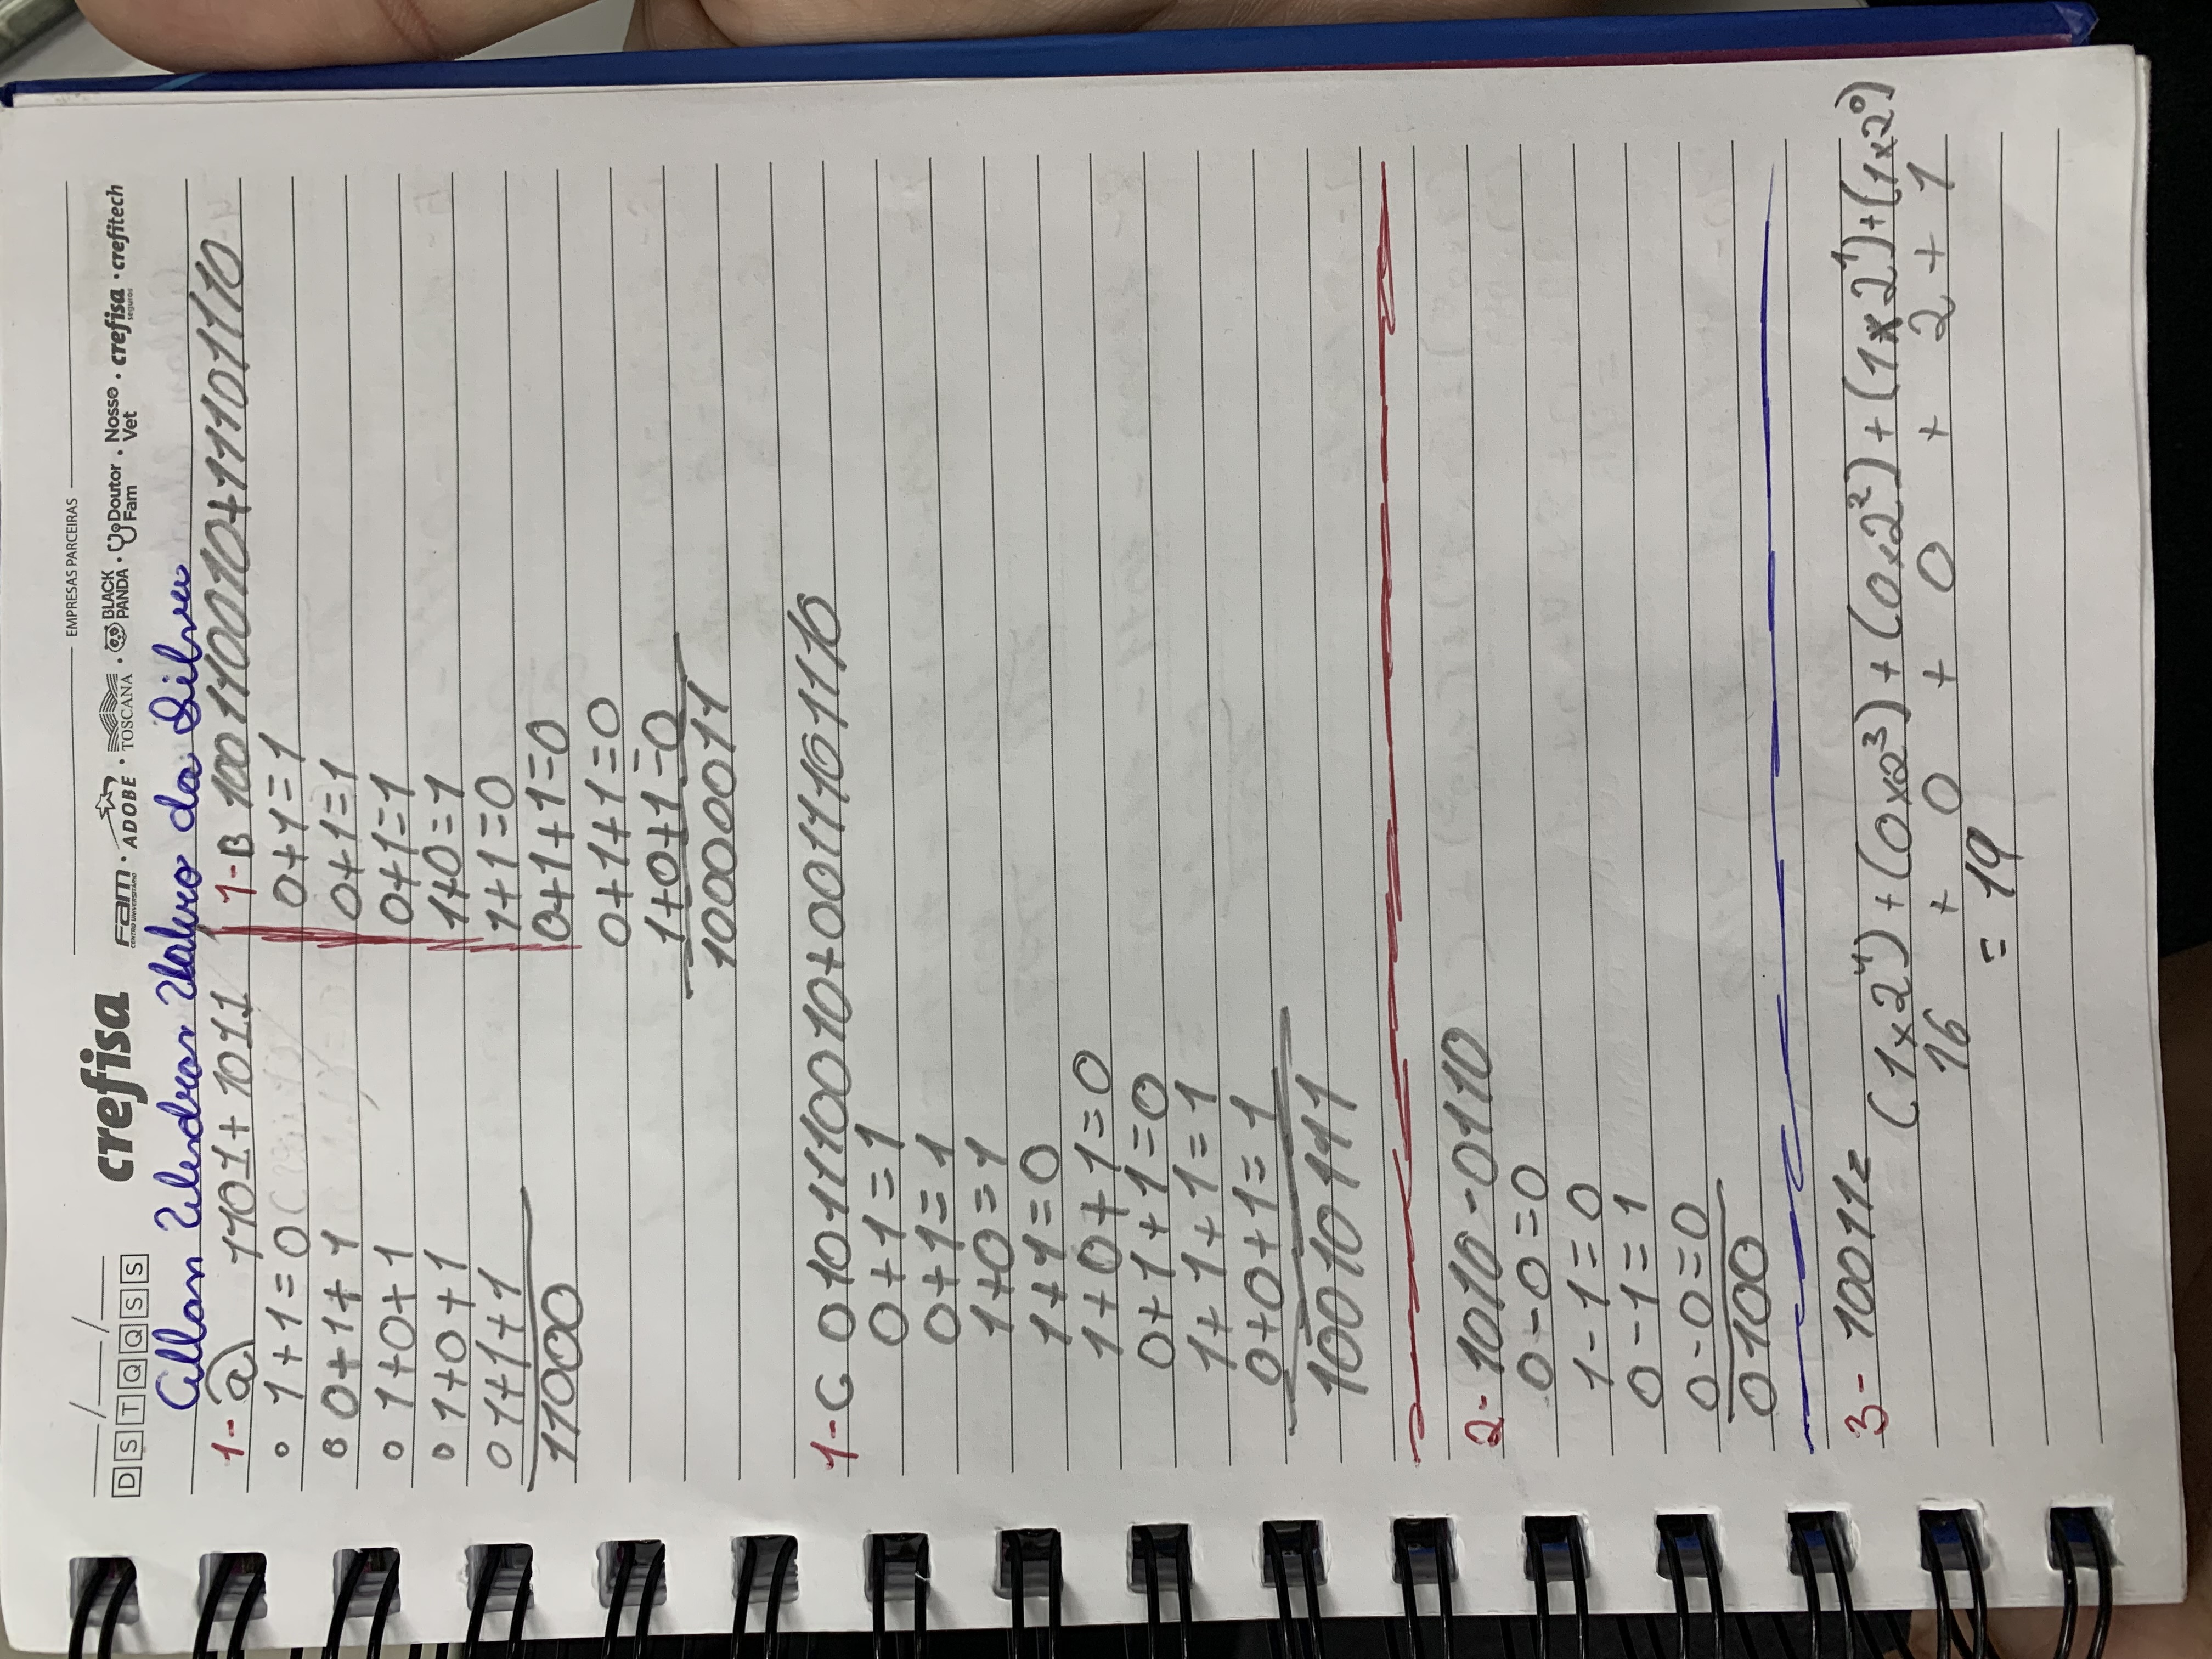 EMPRESAS PARCEIRAS
D S T Q Q S S
crefisa
FAM CENTRO UNIVERSITÁRIO · ADOBE · TOSCANA · BLACK PANDA · Doutor Fam · Nosso Vet · crefisa seguros · crefitech
Allan da Silva
1- a) 1101+1011
1+1=0
0+1+1
1+0+1
1+0+1
1+1+1
11000
1-B 100110010+11101110
0+1=1
0+1=1
0+1=1
1+0=1
1+1=0
0+1+1=0
0+1+1=0
1+0+1=0
10000011
1-C 0101110010+0011101110
0+1=1
0+1=1
1+0=1
1+1=0
1+0+1=0
0+1+1=0
1+1+1=1
0+0+1=1
10010111
2- 1010-0110
0-0=0
1-1=0
0-1=1
0-0=0
0100
3- 10011=
(1x2⁴)+(0x2³)+(0x2²)+(1x2¹)+(1x2⁰)
16 + 0 + 0 + 2 + 1
= 19